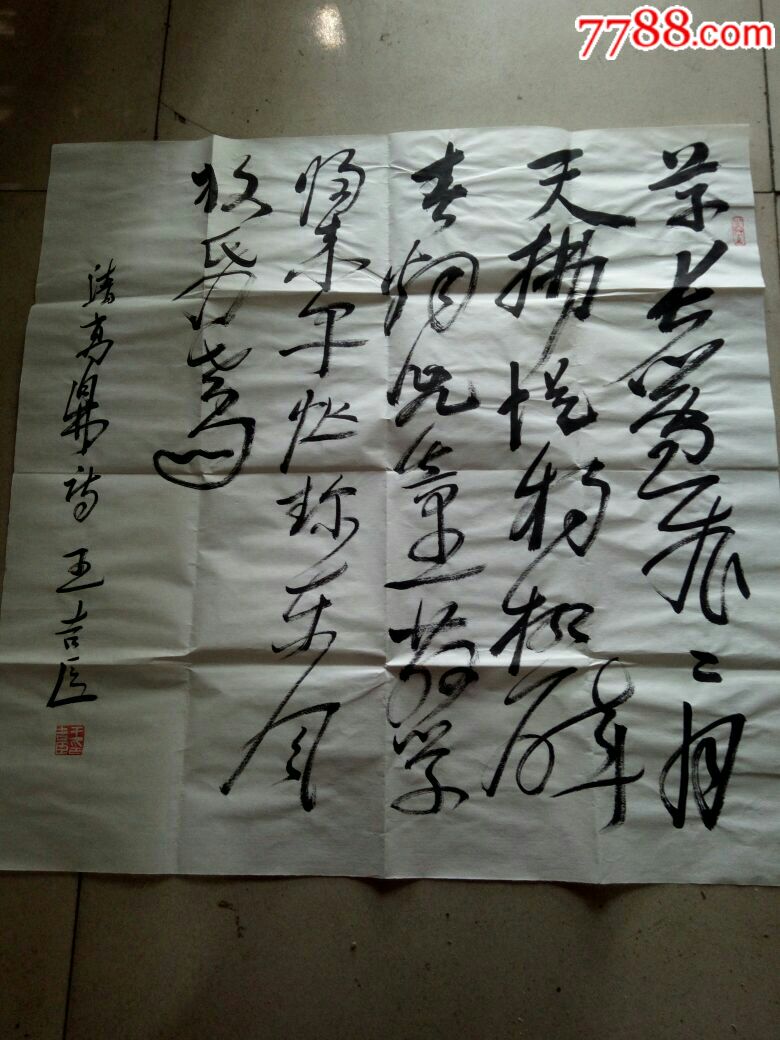 7788.com
草长莺飞二月
天拂堤杨柳醉
春烟儿童散学
归来早忙趁东风
放纸鸢
清高鼎诗 王吉臣